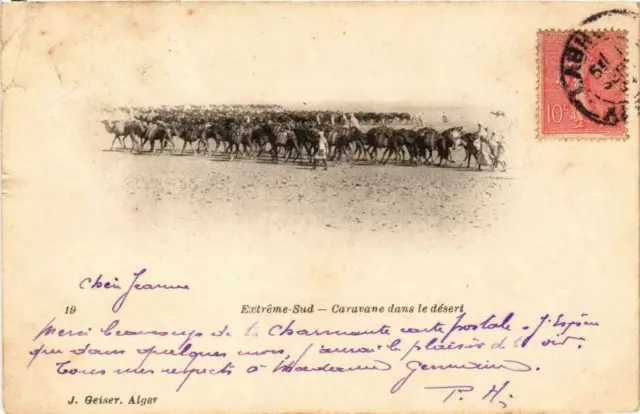 10c
chèr Jeanne
19
Extrême-Sud — Caravane dans le désert
Merci beaucoup de la charmante carte postale. J'Espère
que dans quelques mois, j'aurai le plaisir de voir.
Tous mes respects à Madame Germain.
P. H.
J. Geiser, Alger